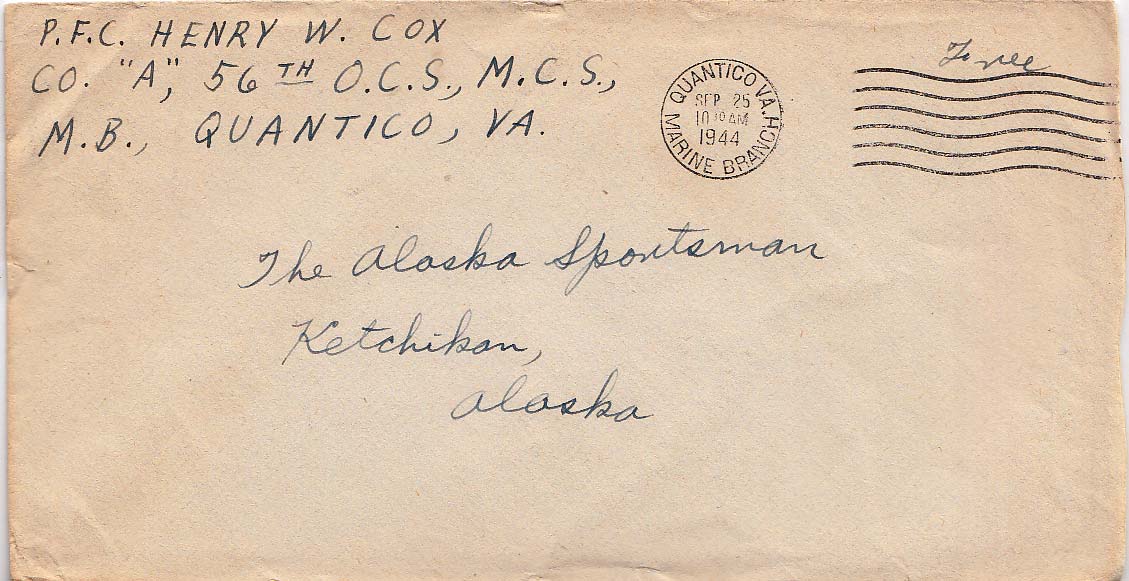 P.F.C. HENRY W. COX
CO. "A", 56TH O.C.S., M.C.S.,
M.B., QUANTICO, VA.
QUANTICO VA.
SEP 25
AM
1944
MARINE BRANCH
Free
The Alaska Sportsman
Ketchikan,
Alaska